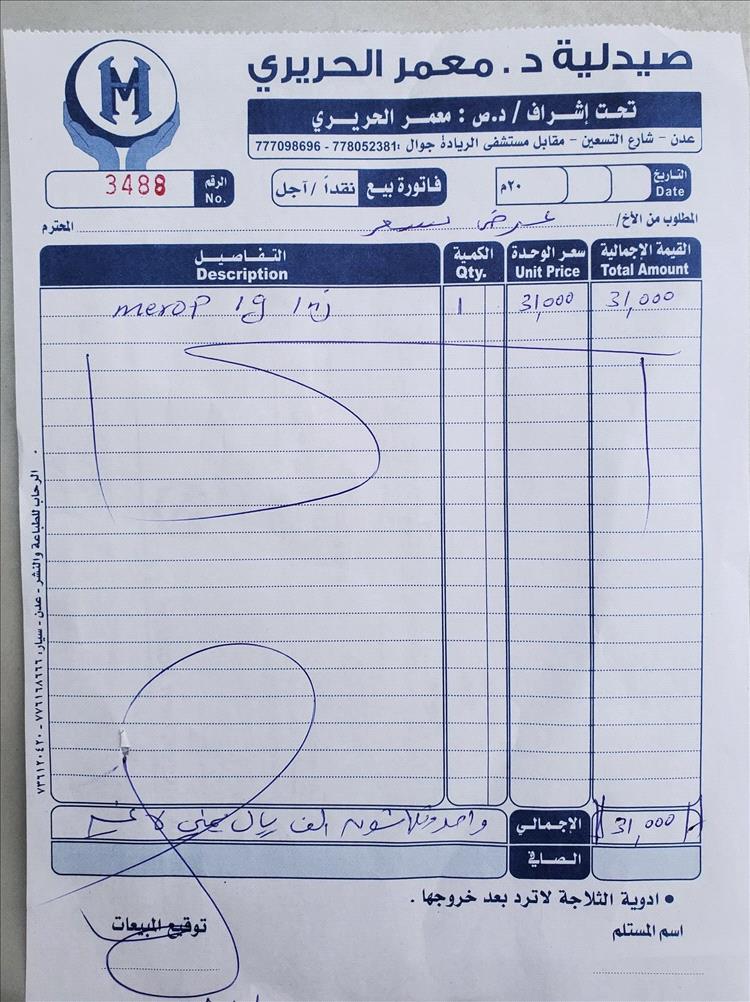 HM
صيدلية د. معمر الحريري
تحت إشراف / د.ص : معمر الحريري
عدن - شارع التسعين - مقابل مستشفى الريادة جوال :778052381 - 777098696
التاريخ
Date
٢٠م
فاتورة بيع نقداً / آجل
الرقم
No.
3488
المطلوب من الأخ/ عرض سعر المحترم
القيمة الإجمالية سعر الوحدة الكمية التفاصيل
Total Amount Unit Price Qty. Description
merop 1g Inj 1 31,000 31,000
الإجمالي 31,000
واحد وثلاثون الف ريال يمني لا غير
الصافي
• ادوية الثلاجة لاترد بعد خروجها .
اسم المستلم توقيع المبيعات
الرحاب للطباعة والنشر - عدن - سيار: ٧٧٦١٦٨٦٦٦ - ٧٣٦١٢٠٤٢٠